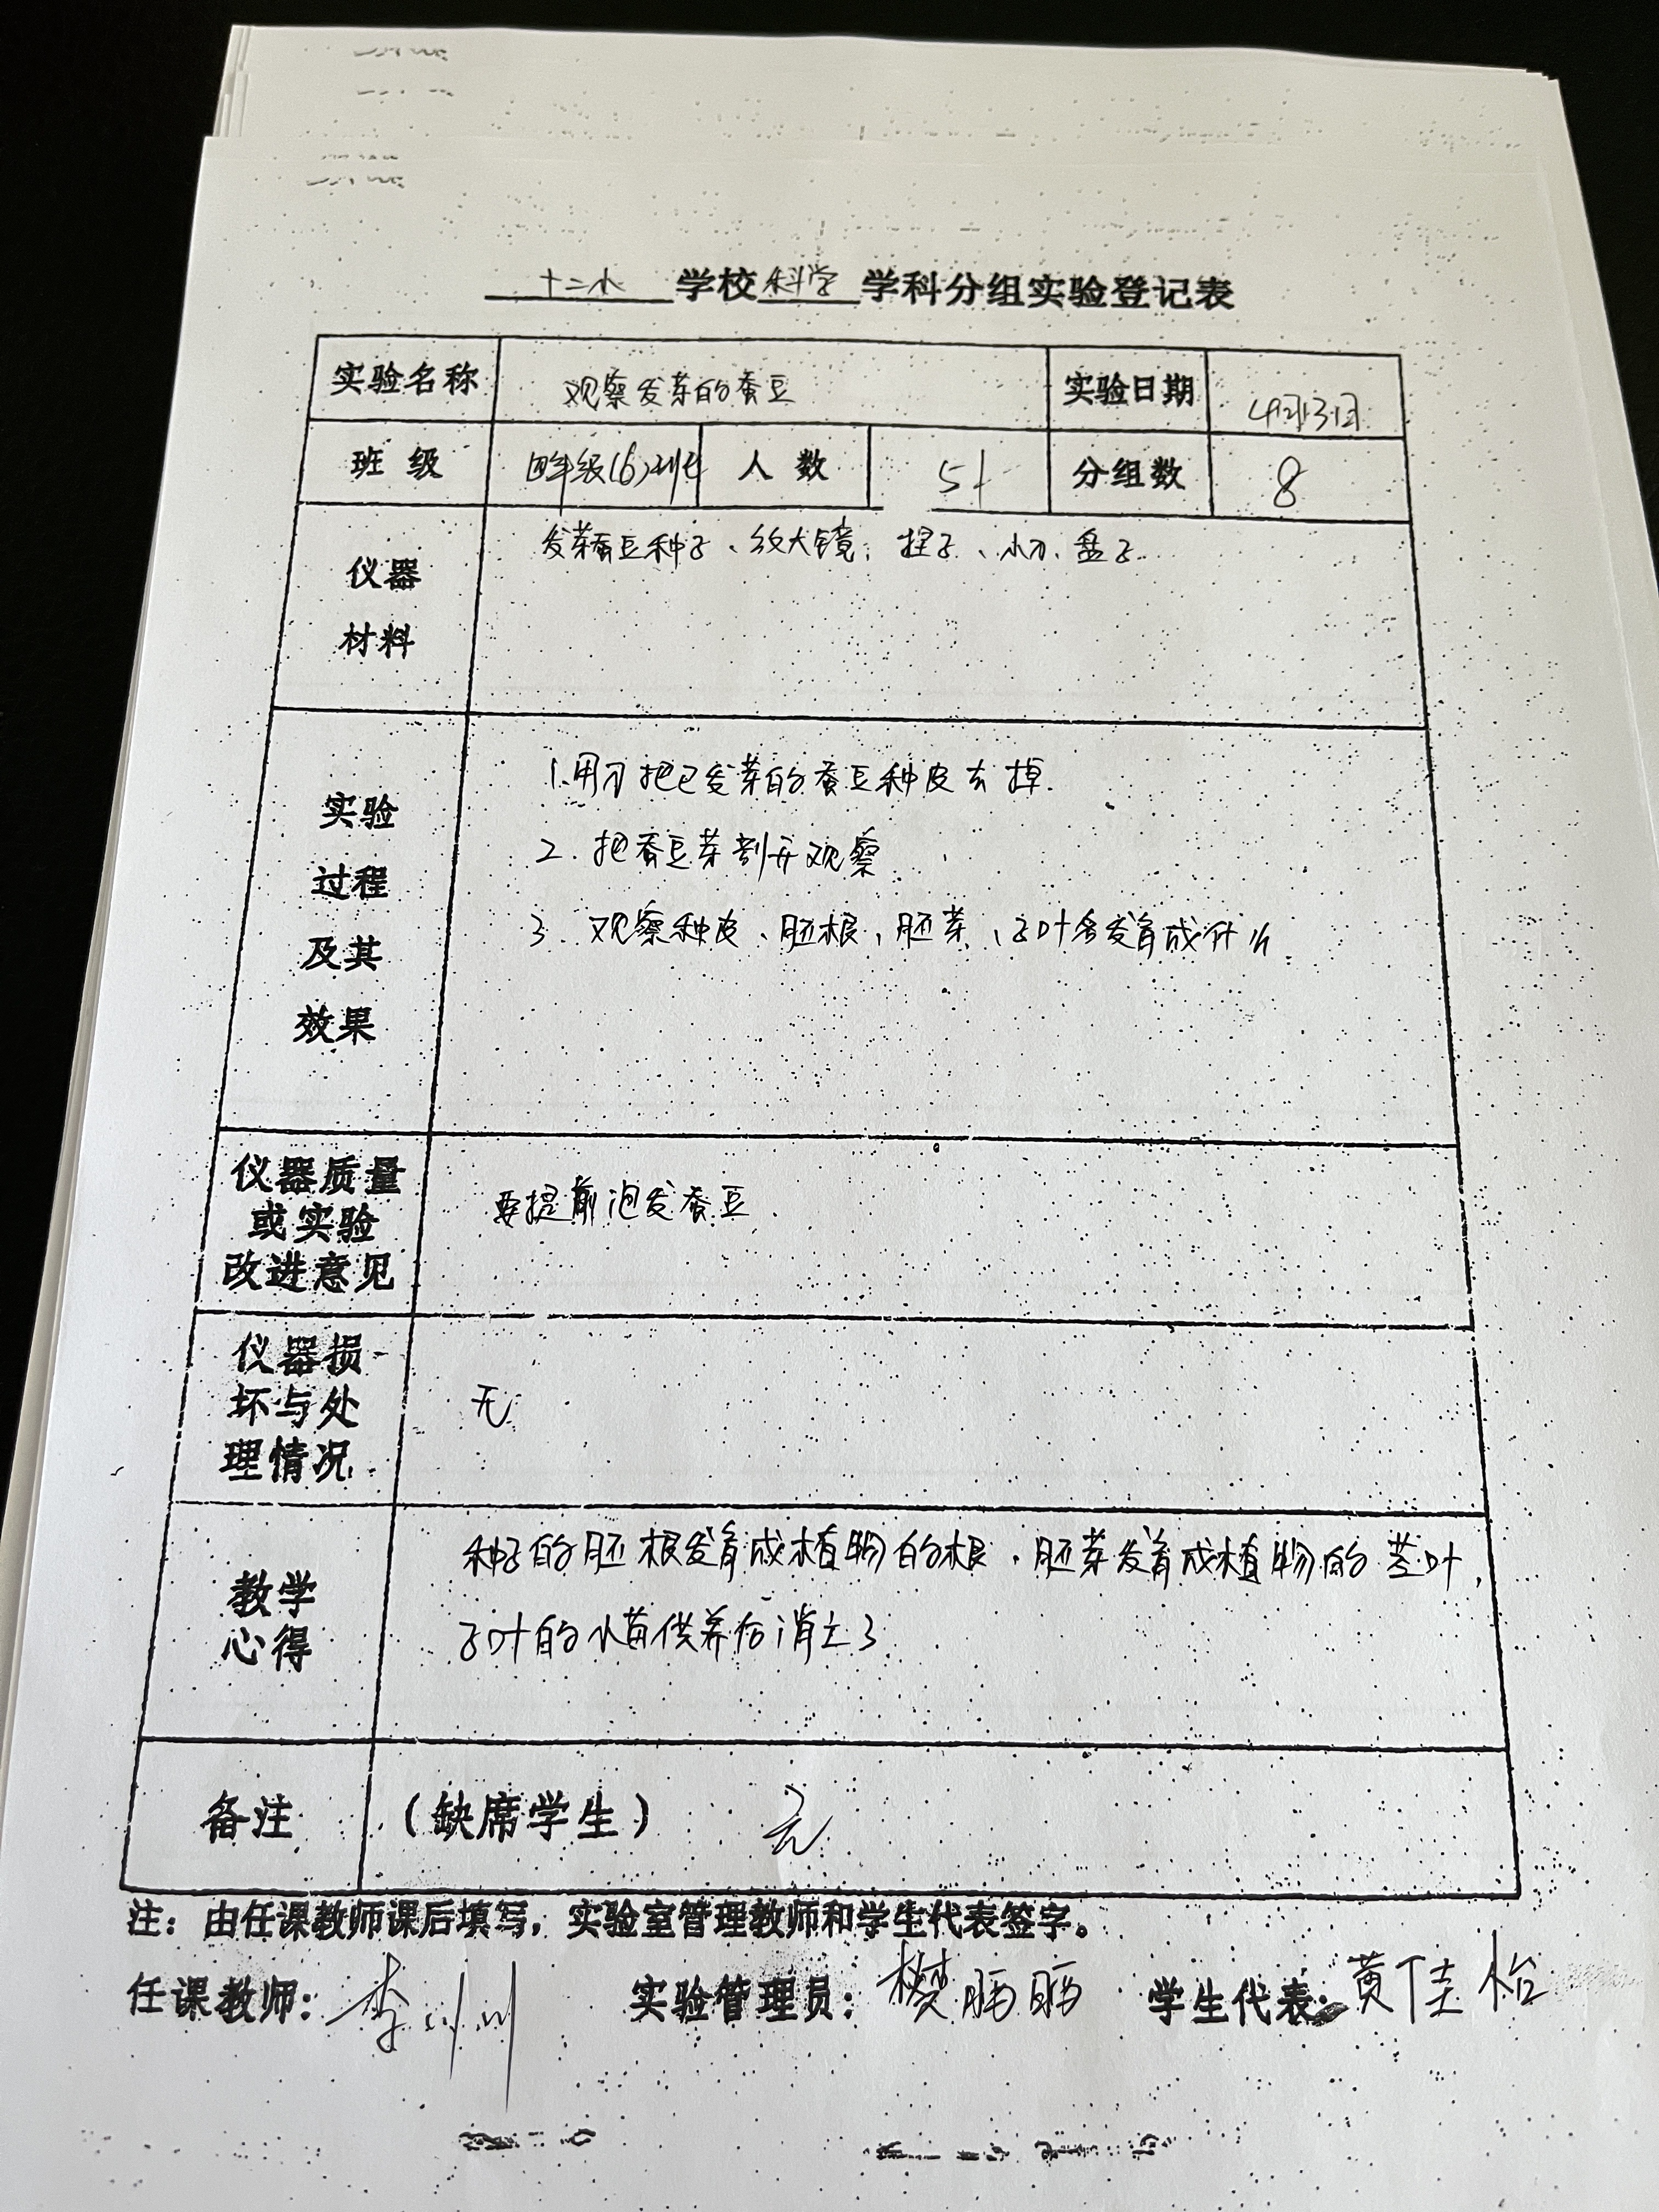 十二小学校科学学科分组实验登记表
实验名称 观察发芽的蚕豆 实验日期 4月13日
班级 四年级(6)班 人数 51 分组数 8
仪器
材料
发芽蚕豆种子、放大镜、捏子、小刀、盘子
实验
过程
及其
效果
1.用刀把已发芽的蚕豆种皮去掉.
2.把蚕豆芽剖开观察
3.观察种皮、胚根、胚芽、子叶会发育成什么
仪器质量
或实验
改进意见
要提前泡发蚕豆
仪器损
坏与处
理情况
无
教学
心得
种子的胚根发育成植物的根,胚芽发育成植物的茎叶,
子叶的小苗供养后消失了
备注 (缺席学生) 无
注:由任课教师课后填写,实验室管理教师和学生代表签字。
任课教师:李 实验管理员:樊 学生代表:黄佳怡